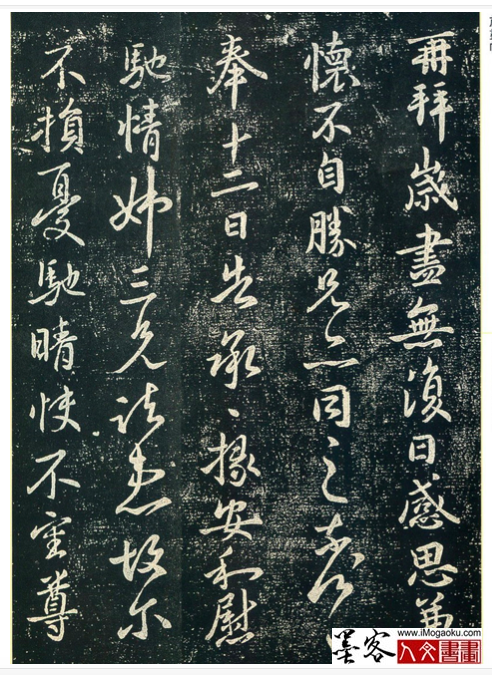 再拜歲盡無復日感思兼
懷不自勝兄亦同之
奉十二日告承〻掾安和慰
馳情姊三兄諸患故尔
不損憂馳晴快不審尊
墨客
www.iMogaoku.com
人文書畫